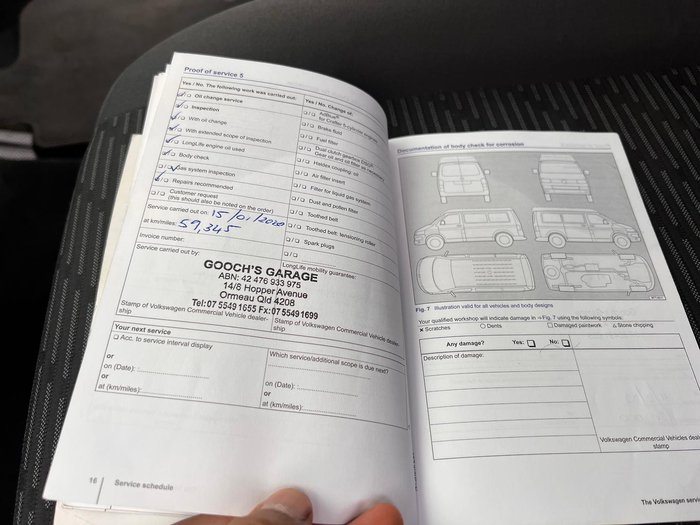 Proof of service 5
Yes / No. The following work was carried out:
Oil change service
Inspection
With oil change
With extended scope of inspection
LongLife engine oil used
Body check
Gas system inspection
Repairs recommended
Customer request
(this should also be noted on the order)
Service carried out on: 15/01/2020
at km/miles: 59,345
Invoice number:
Service carried out by:
Yes / No. Change of:
AdBlue®
for Crafter 5-cylinder engines
Brake fluid
Fuel filter
Dual clutch gearbox DSG®:
Gear oil and oil filter as necessary
Haldex coupling: oil
Air filter insert
Filter for liquid gas system
Dust and pollen filter
Toothed belt
Toothed belt: tensioning roller
Spark plugs
LongLife mobility guarantee:
GOOCH'S GARAGE
ABN: 42 476 933 975
14/8 Hopper Avenue
Ormeau Qld 4208
Tel:07 5549 1655 Fx:07 5549 1699
Stamp of Volkswagen Commercial Vehicle dealer-
ship
Stamp of Volkswagen Commercial Vehicle dealer-
ship
Your next service
Acc. to service interval display
or
on (Date):
or
at (km/miles):
Which service/additional scope is due next?
on (Date):
or
at (km/miles):
16 Service schedule
Documentation of body check for corrosion
Fig. 7 Illustration valid for all vehicles and body designs
Your qualified workshop will indicate damage in ⇒Fig. 7 using the following symbols:
× Scratches ○ Dents □ Damaged paintwork △ Stone chipping
Any damage? Yes: No:
Description of damage:
Volkswagen Commercial Vehicles deal
stamp
The Volkswagen servi